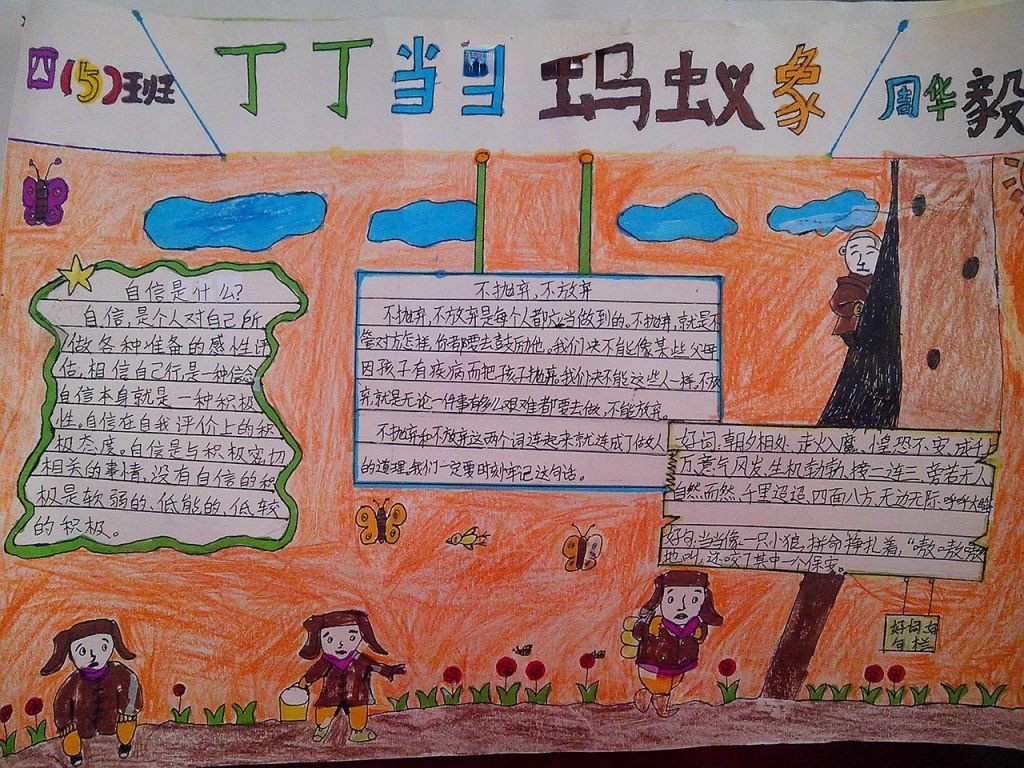 四(5)班
丁丁当当 蚂蚁象
周华毅
自信是什么?
自信,是个人对自己所
做各种准备的感性评
估。相信自己行,是一种信念
自信本身就是一种积极
性。自信在自我评价上的积
极态度。自信是与积极密切
相关的事情。没有自信的积
极是软弱的、低能的、低较
的积极。
不抛弃,不放弃
不抛弃,不放弃是每个人都应当做到的。不抛弃,就是不
管对方怎样,你都要去鼓励他。我们决不能像某些父母
因孩子有疾病而把孩子抛弃。我们决不能这些人一样。不放
弃,就是无论一件事有多么艰难都要去做,不能放弃。
不抛弃和不放弃这两个词连起来就造成了做人
的道理。我们一定要时刻牢记这句话。
好词:朝夕相处、走火入魔、惶恐不安、成千上
万、意气风发、生机勃勃、接二连三、旁若无人
自然而然、千里迢迢、四面八方、无边无际、呼呼大睡
好句:当当像一只小狼,拼命挣扎着,“嗷嗷嗷
地叫,还咬了其中一个保安。
好词好
句栏